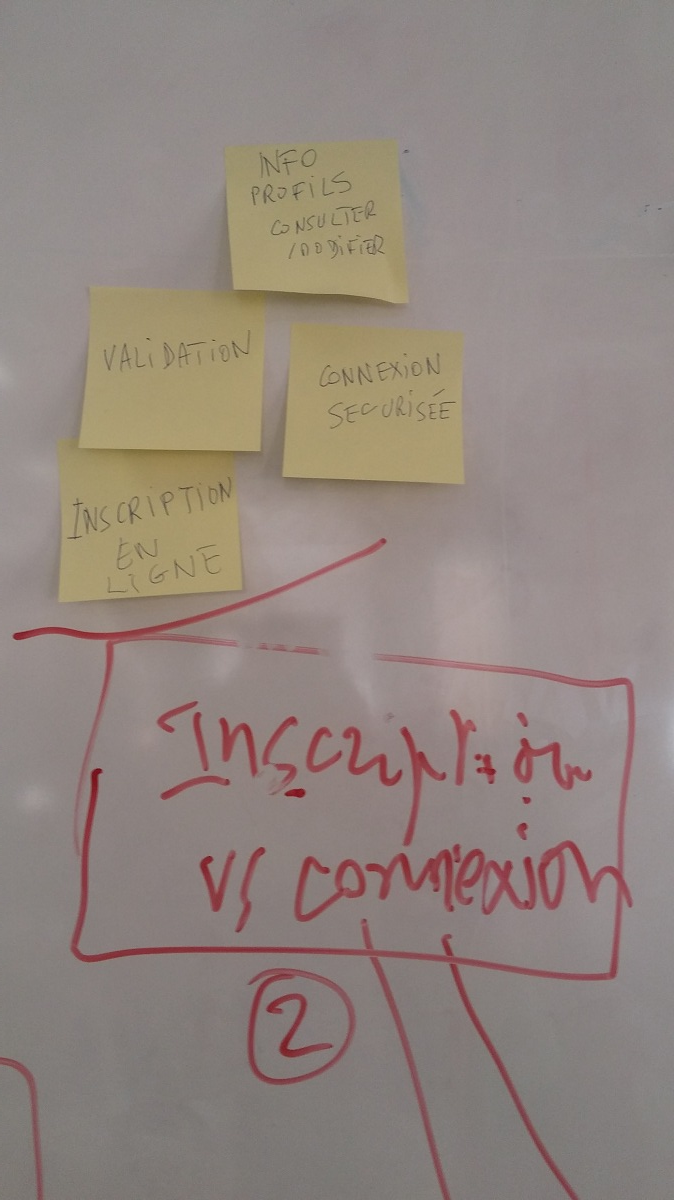 INFO
PROFILS
CONSULTER
/MODIFIER
VALIDATION
CONNEXION
SECURISÉE
INSCRIPTION
EN
LIGNE
Inscription
vs connexion
2